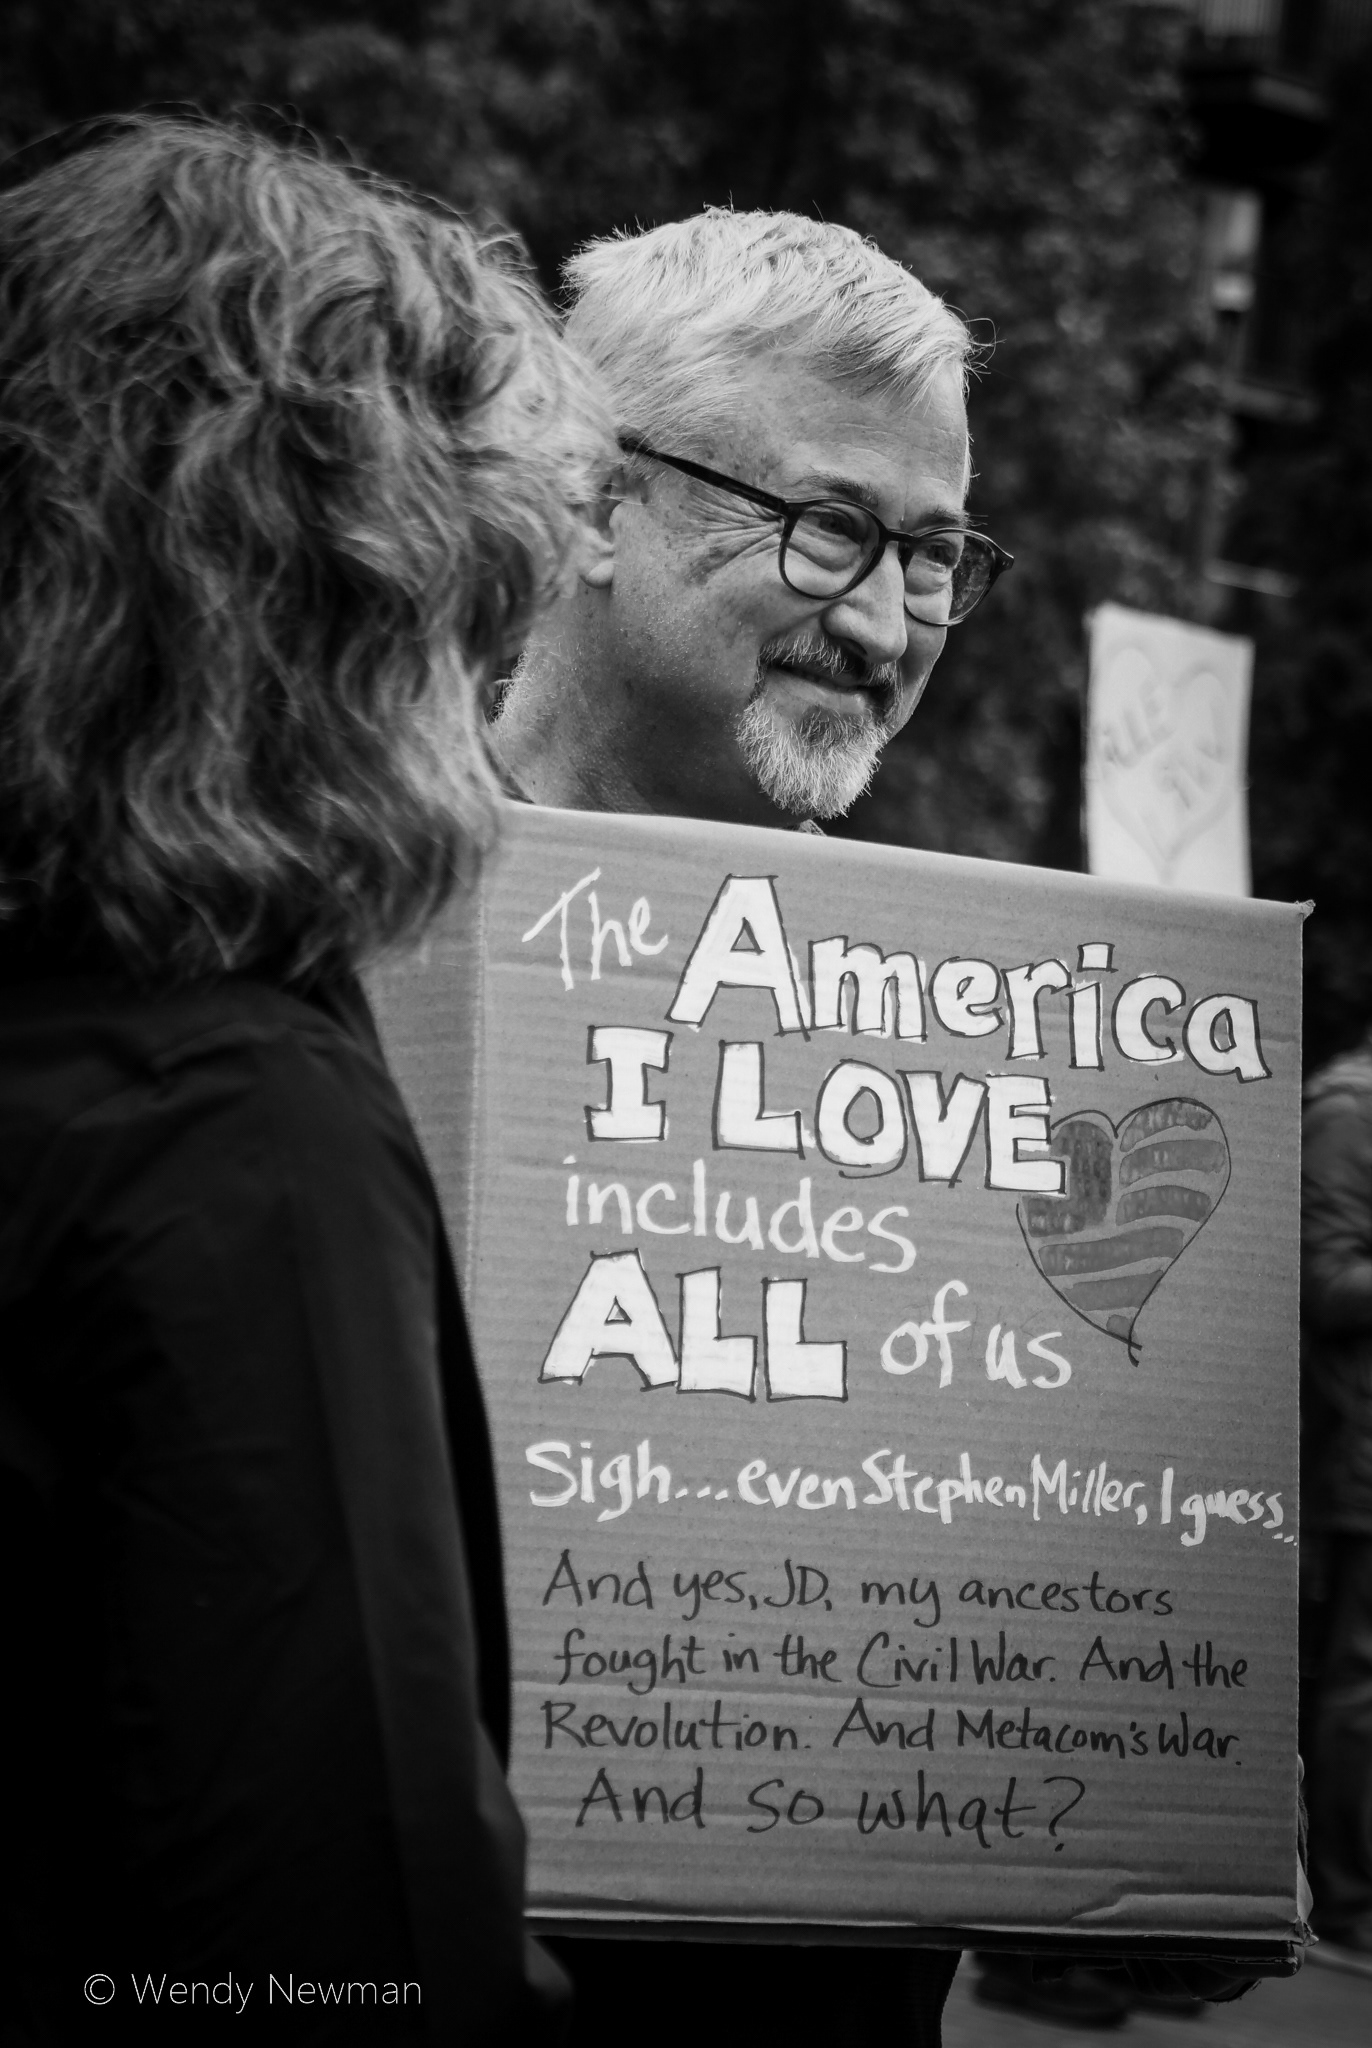 The America
I LOVE
includes
ALL of us
Sigh... even Stephen Miller, I guess...
And yes, JD, my ancestors
fought in the Civil War. And the
Revolution. And Metacom's War.
And so what?
© Wendy Newman